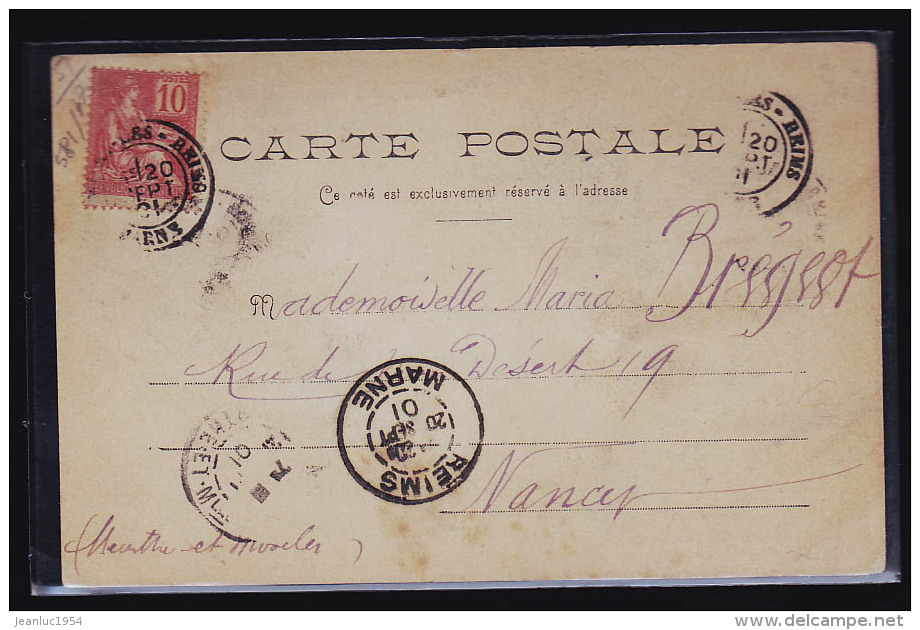 581/
POSTES
10
CARTE POSTALE
Ce coté est exclusivement réservé à l'adresse
REIMS
20
SEPT
01
REIMS
20
Mademoiselle Maria Brégeot
Rue de Désert 19
REIMS
20 SEPT
01
MARNE
Nancy
(Meurthe et Moselle)
jeanluc1954
delcampe.net